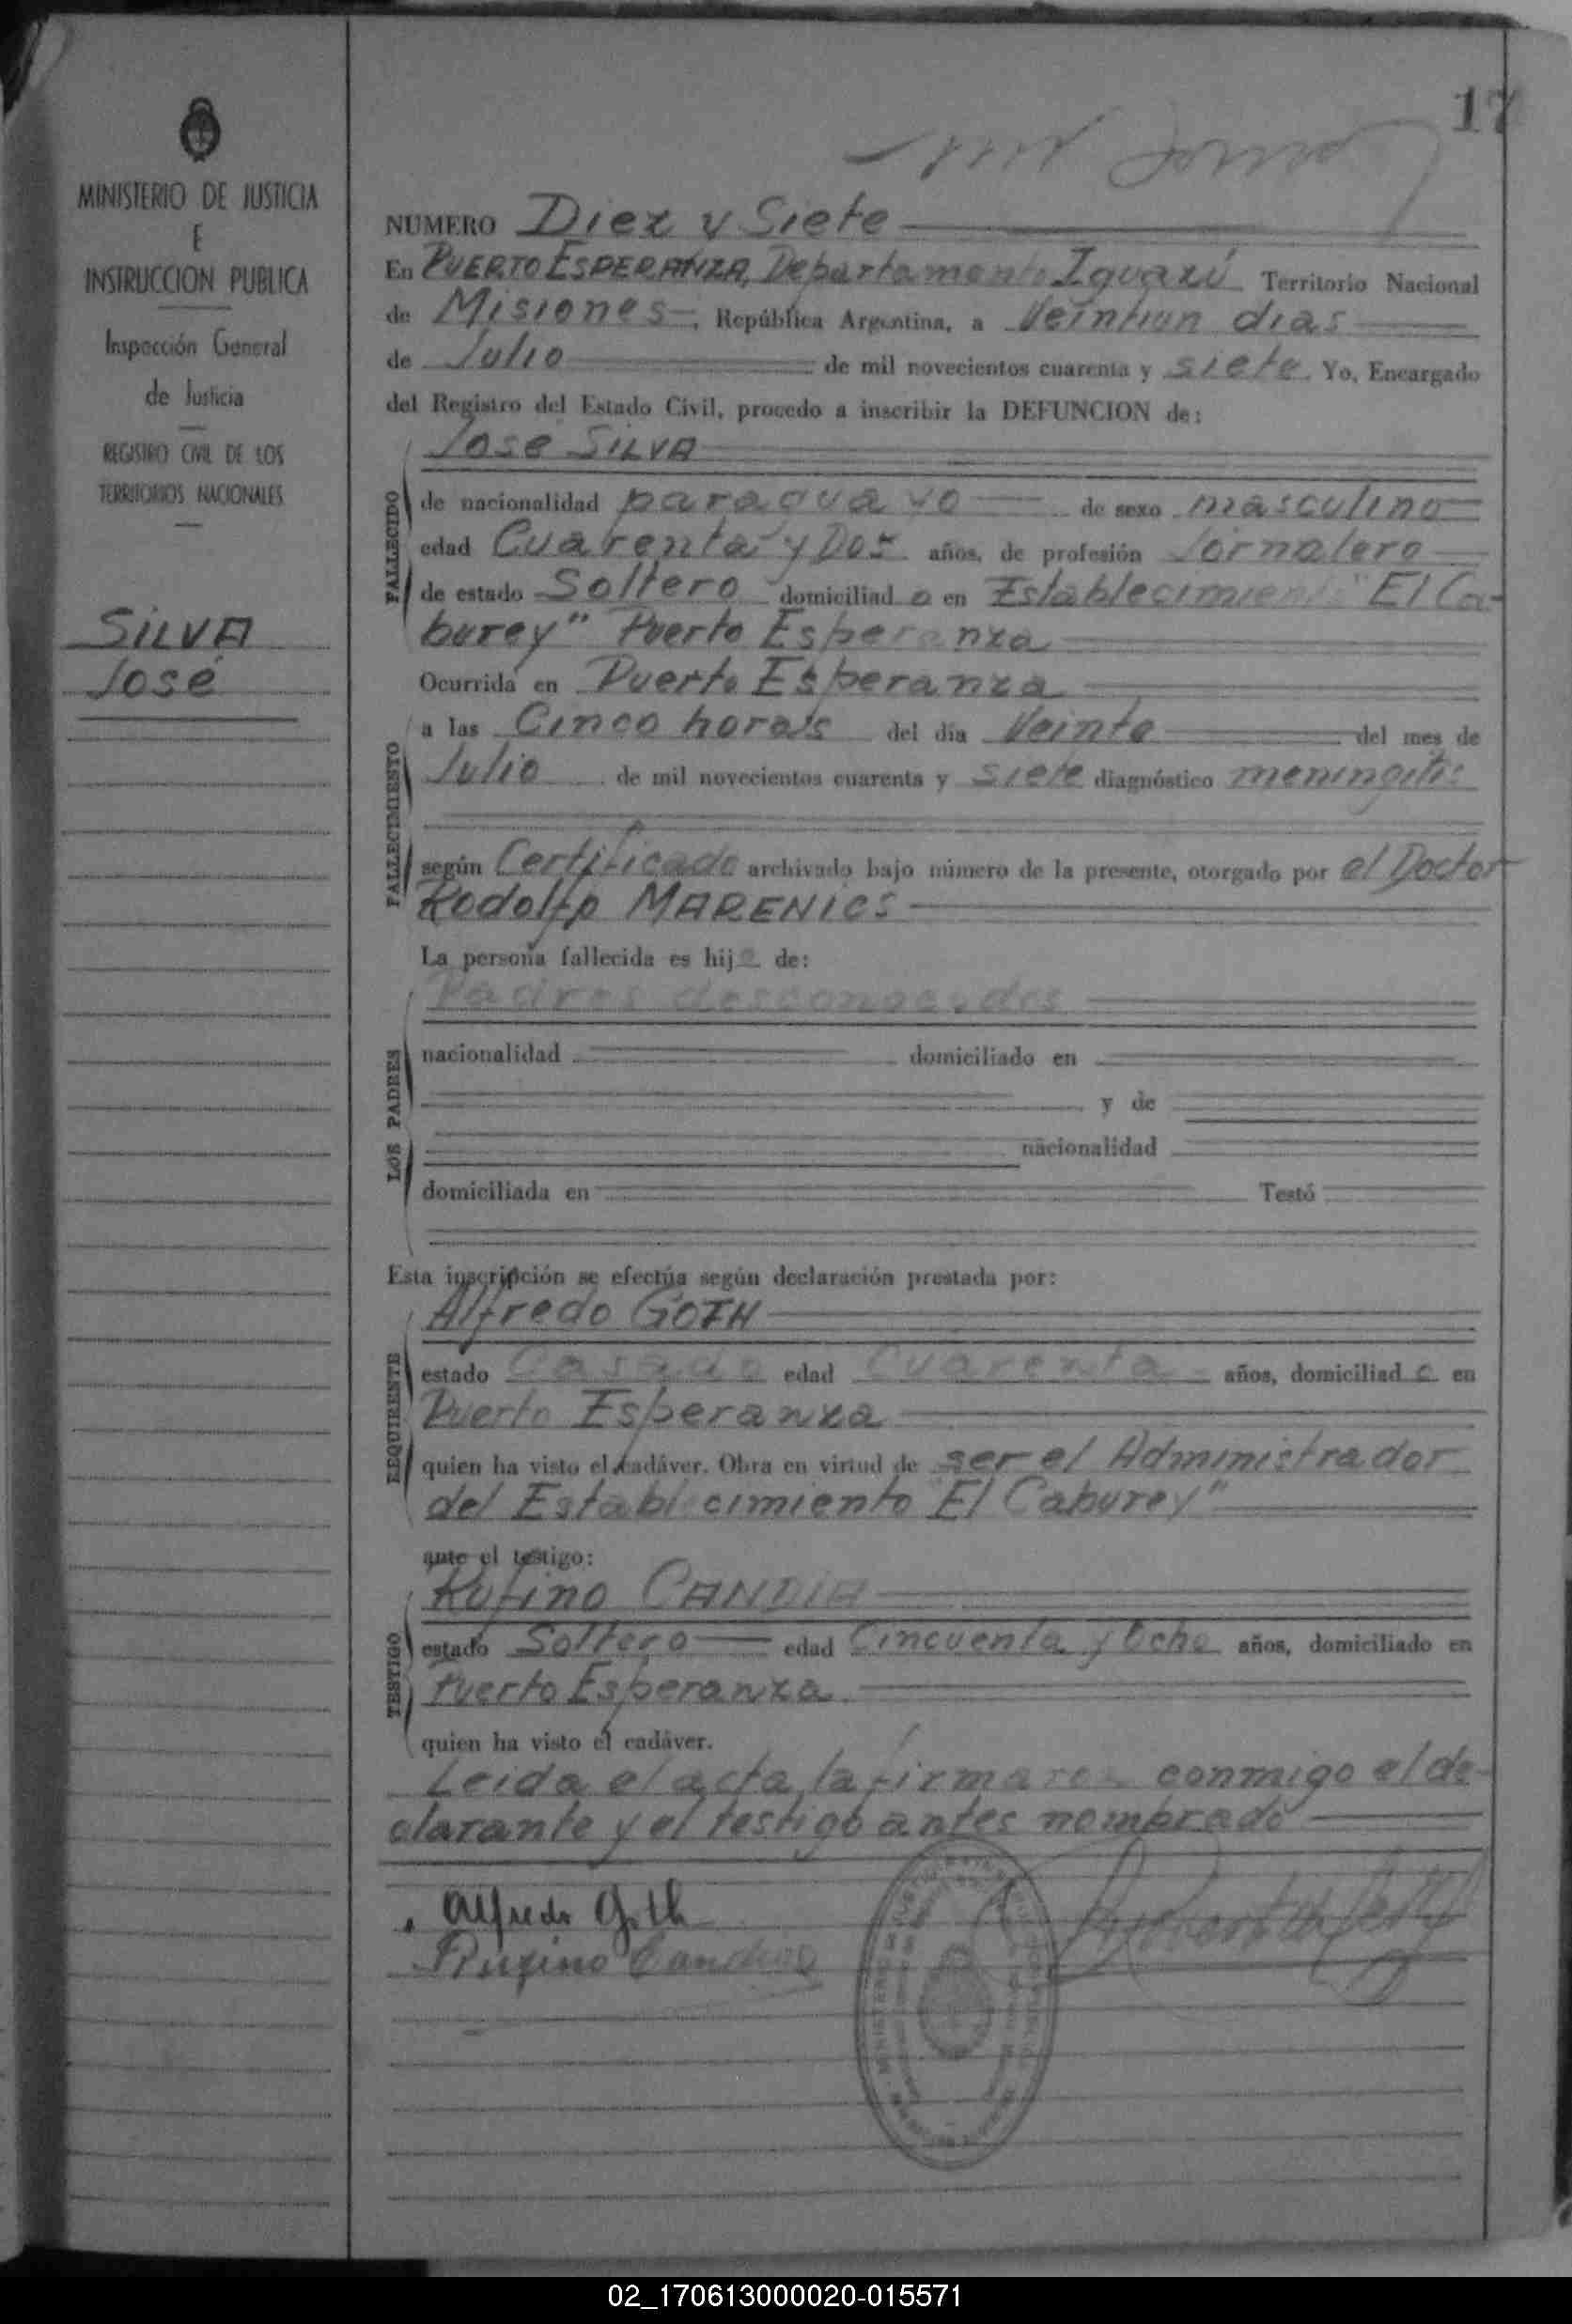 17
MINISTERIO DE JUSTICIA
E
INSTRUCCION PUBLICA
Inspección General
de Justicia
REGISTRO CIVIL DE LOS
TERRITORIOS NACIONALES
SILVA
José
NUMERO Diez y Siete
En PUERTO ESPERANZA, Departamento Iguazú Territorio Nacional
de Misiones, República Argentina, a Veintiun dias
de Julio de mil novecientos cuarenta y siete. Yo, Encargado
del Registro del Estado Civil, procedo a inscribir la DEFUNCION de:
José SILVA
FALLECIDO
de nacionalidad paraguayo de sexo masculino
edad Cuarenta y Dos años, de profesión Jornalero
de estado Soltero domiciliado en Establecimiento "El Ca-
burey" Puerto Esperanza
Ocurrida en Puerto Esperanza
FALLECIMIENTO
a las Cinco horas del día Veinte del mes de
Julio de mil novecientos cuarenta y siete diagnóstico meningitis
según Certificado archivado bajo número de la presente, otorgado por el Doctor
Rodolfo MARENICS
La persona fallecida es hijo de:
LOS PADRES
Padres desconocidos
nacionalidad domiciliado en
y de
nacionalidad
domiciliada en Testó
Esta inscripción se efectúa según declaración prestada por:
REQUIRENTE
Alfredo GOTH
estado Casado edad Cuarenta años, domiciliado en
Puerto Esperanza
quien ha visto el cadáver. Obra en virtud de ser el Administrador
del Establecimiento "El Caburey"
ante el testigo:
TESTIGO
Rufino CANDIA
estado Soltero edad Cincuenta y Ocho años, domiciliado en
Puerto Esperanza
quien ha visto el cadáver.
Leida el acta, la firmaron conmigo el de-
clarante y el testigo antes nombrado
Alfredo Goth
Rufino Candia
02_170613000020-015571